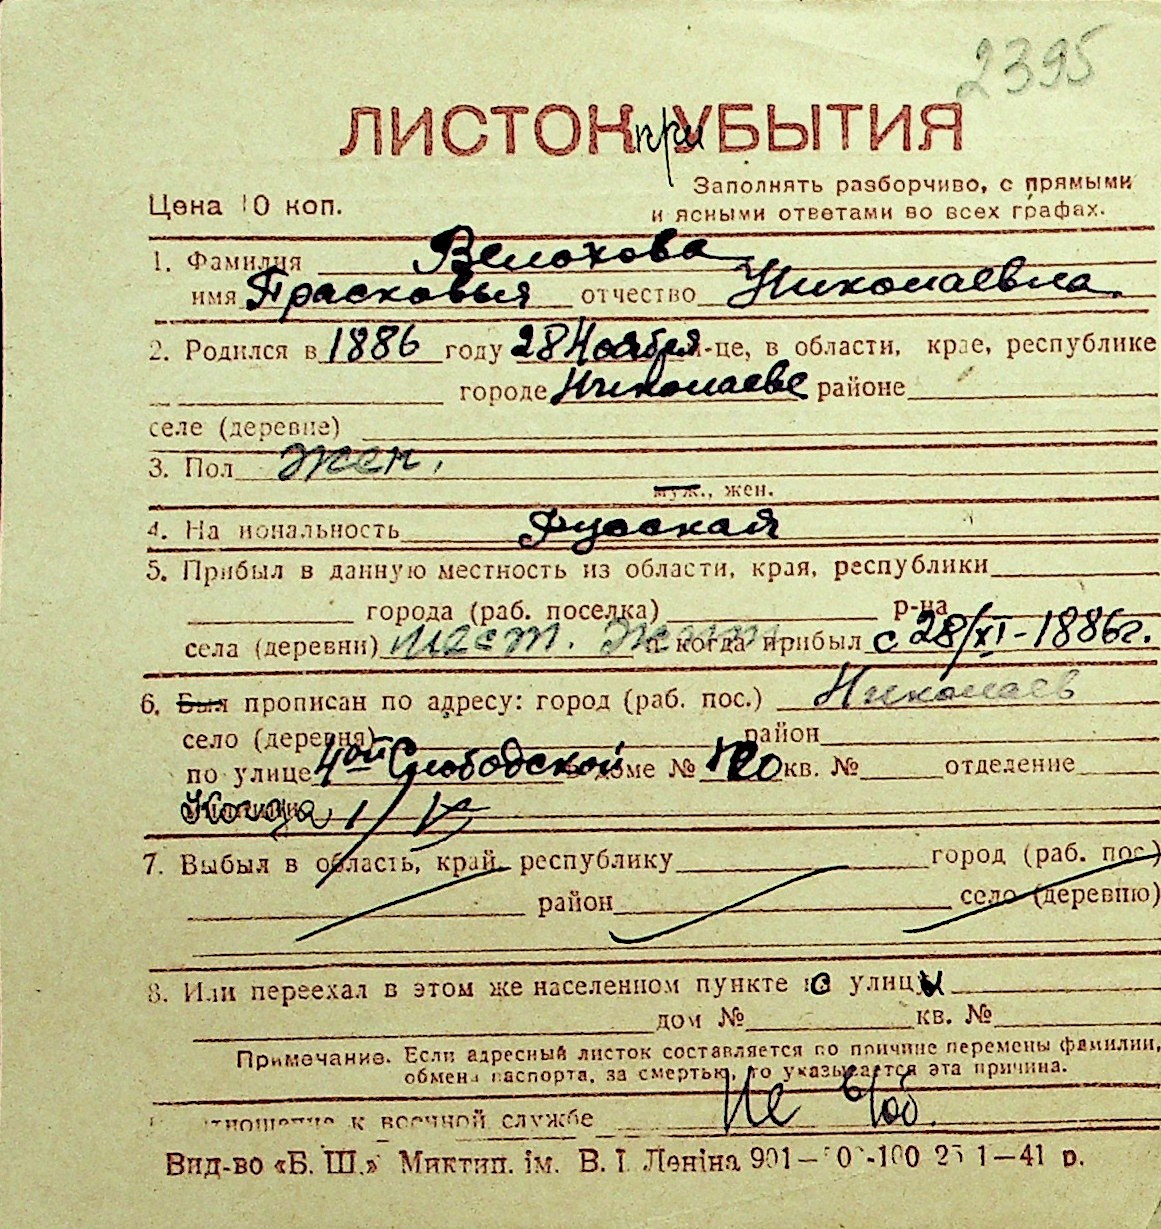 2395
ЛИСТОК при УБЫТИЯ
Цена 10 коп.
Заполнять разборчиво, с прямыми
и ясными ответами во всех графах.
1. Фамилия Велохова
имя Прасковья отчество Николаевна
2. Родился в 1886 году 28 Ноября -це, в области, крае, республике
городе Николаеве районе
селе (деревне)
3. Пол жен.
муж., жен.
4. На иональность Русская
5. Прибыл в данную местность из области, края, республики
города (раб. поселка) р-на
села (деревни) мест. жит. и когда прибыл с 28/XI-1886г.
6. Был прописан по адресу: город (раб. пос.) Николаев
село (деревня) район
по улице 4ой Слободской доме № 20 кв. № отделение
Когда 1/V
7. Выбыл в область, край, республику город (раб. пос.)
район село (деревню)
8. Или переехал в этом же населенном пункте с улицы
дом № кв. №
Примечание. Если адресный листок составляется по причине перемены фамилии,
обмена паспорта, за смертью, то указывается эта причина.
тношение к военной службе Не в/об.
Вид-во «Б. Ш.» Миктип. ім. В. І. Леніна 901— 0-100 25 1—41 р.